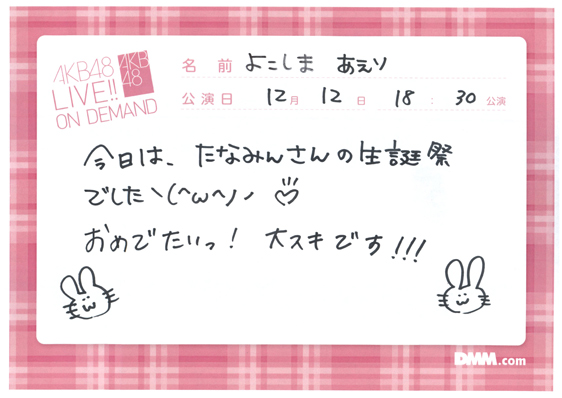 AKB48
LIVE!!
ON DEMAND
AKB
48
名前 よこしま あえり
公演日 12月 12日 18:30公演
今日は、たなみんさんの生誕祭
でしたヽ(^ω^)ノ ♡
おめでたいっ! 大スキです!!!
DMM.com